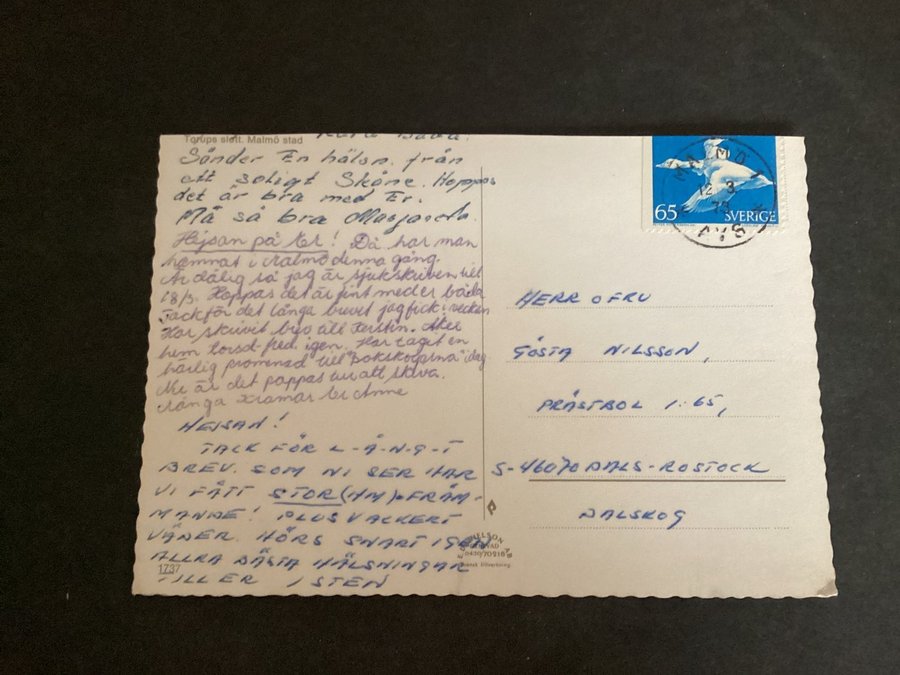 Torups slott. Malmö stad
Kära Båda!
Sänder En hälsn. från
ett soligt Skåne. Hoppas
det är bra med Er.
Må så bra
Hejsan på Er! Då har man
hamnat i Malmö denna gång.
Är dålig så jag är sjukskriven till
18/3. Hoppas det är fint med er båda
Tack för det långa brevet jag fick i veckan
Har skrivit brev till Kerstin. Åker
hem torsd-fred. igen. Har tagit en
härlig promenad till "Bokskogarna" idag
Nu är det pappas tur att skriva.
Många kramar Er Anne
HEJSAN!
TACK FÖR L-Å-N-G-T
BREV. SOM NI SER HAR
VI FÅTT STOR(HM)-FRÄM-
MANDE! PLUS VACKERT
VÄDER. HÖRS SNART IGEN
ALLRA BÄSTA HÄLSNINGAR
TILL ER STEN
1737
65 SVERIGE
MALMÖ 1
12 3
HERR O FRU
GÖSTA NILSSON,
PRÄSTBOL 1:65,
S-46070 DALS-ROSTOCK
DALSKOG
0430/70218
Svensk tillverkning.